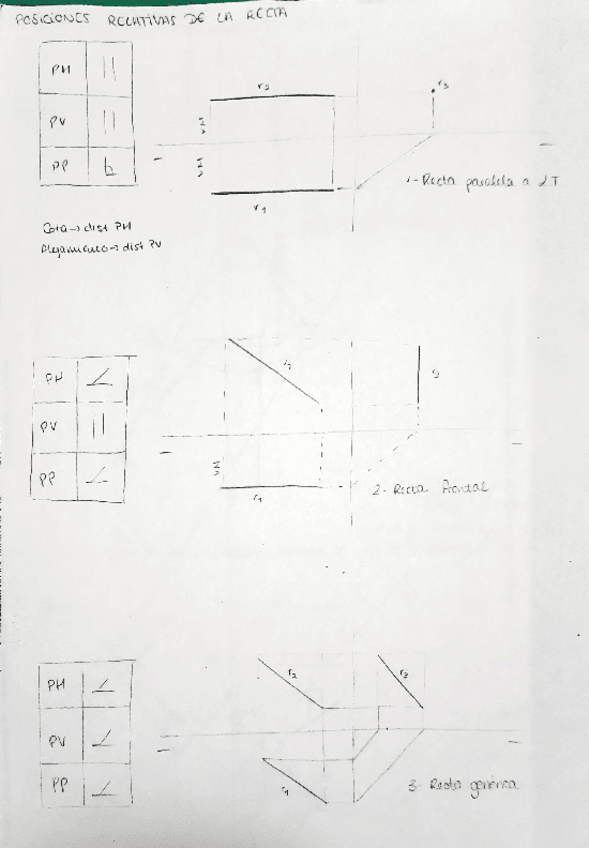 POSICIONES RELATIVAS DE LA RECTA
PH
PV
PP
r2
r3
r1
1-Recta paralela a LT
Cota→dist PH
Alejamiento→dist PV
PH
PV
PP
r2
r3
r1
2- Recta Frontal
PH
PV
PP
r2
r3
r1
3- Recta genérica